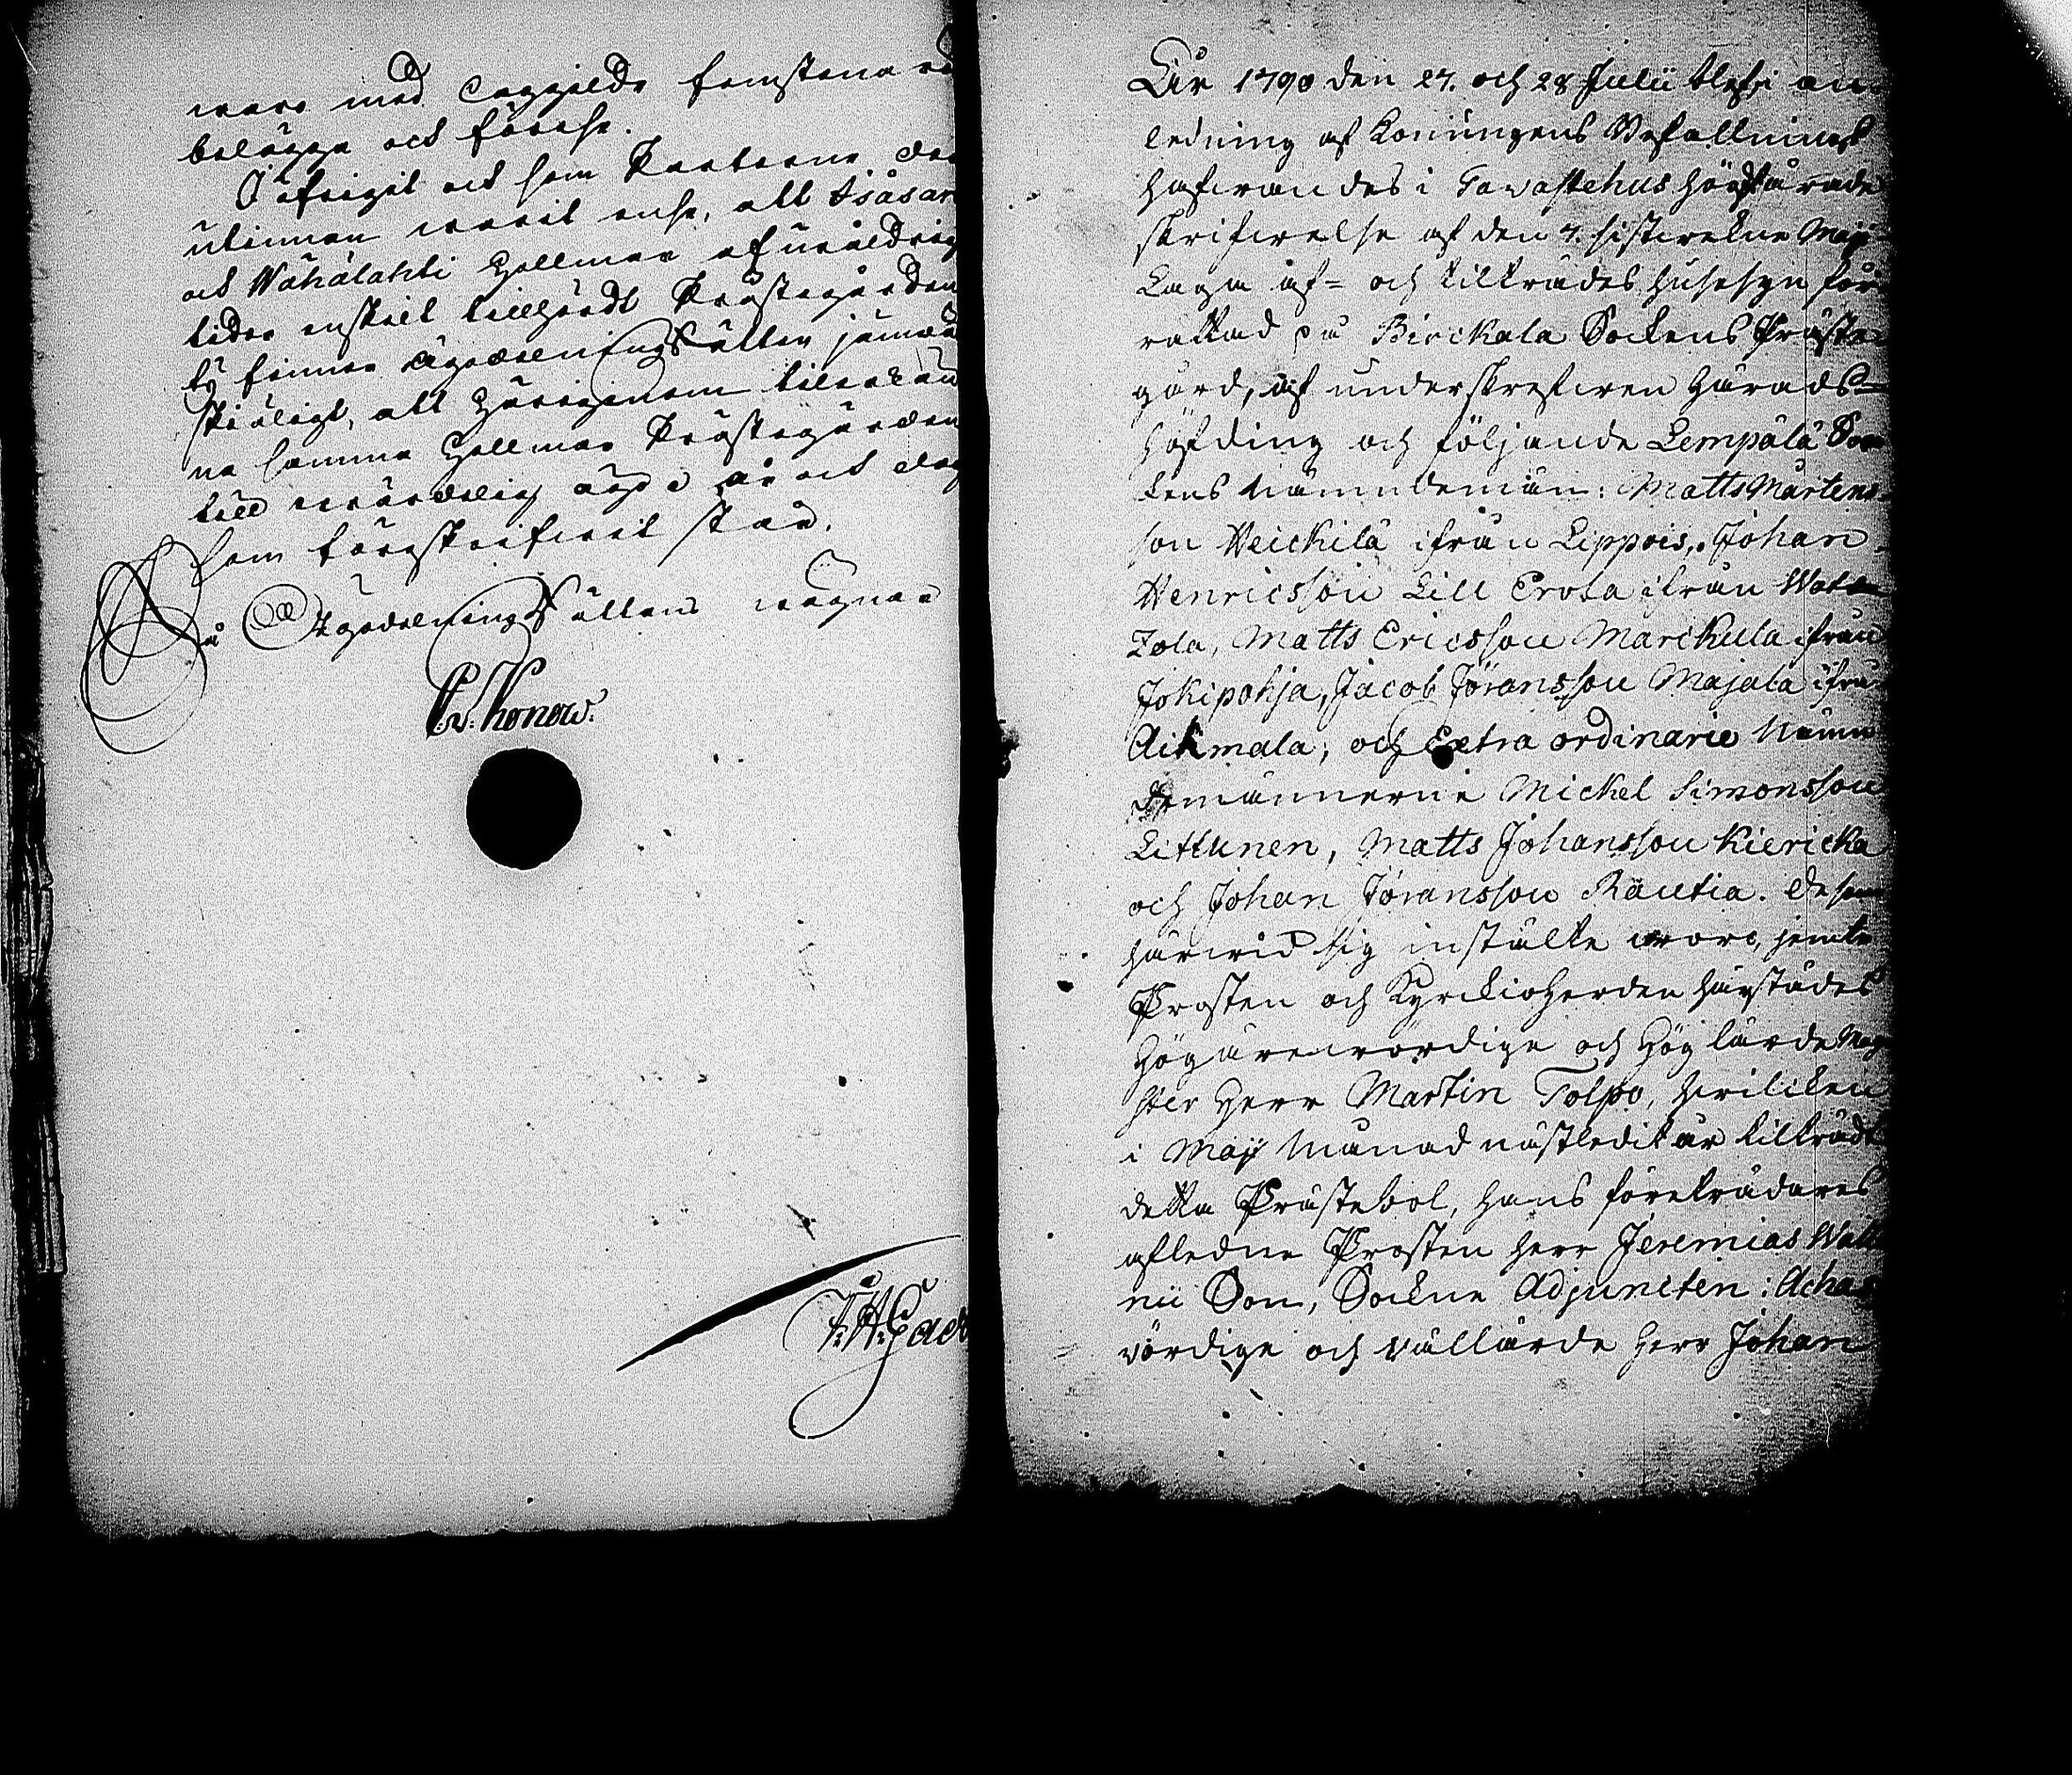 ware med laggilda femstena rö
belägga och förese.
Öfrigit och som Parterne der
utinnan warit ense, att Isåsari
och Wähälahti Holmar af uråldrig
tider enskilt tillhördt Prästegården
ty finner ÄgodelningsRätten jemwäl
skiäligt, att härigenom tillerkän
na samma Holmar Prästegården
till wärdelig ägo, år och dag
som förrskrifwit står.
På ÆgodelningsRättens wägnar
C. v: Konow.
F: H: Gad
Åhr 1790 den 27. och 28 Julii blef i an
ledning af Konungens Befallnings
hafwandes i Tavastehus högstärade
skrifwelse af den 7. sistwekne Maji
Laga af= och tilträdes husesyn för
rättad på Birckala Sockens Präste
gård, af underskrefwen Härads=
höfding och följande Lempälä Soc
kens Nämndemän: Matts Mårtens
son Heickilä ifrån Lippois, Johan
Henricsson Lill Erola ifrån Wata
Iola, Matts Ericsson Marckula ifrån
Jokipohja, Jacob Jöransson Majala ifrån
Aimala, och Extra ordinarie Nämn
demännerne Mickel Simonsson
Littunen, Matts Johansson Kiericka
och Johan Jöransson Rautia. De som
härwid sig instälte woro, jemte
Prosten och Kyrckioherden härstädes
Högärewördige och Höglärde Mag
ster Herr Martin Tolpo, hwilcken
i Maji Månad nästledit år tilträdt
detta Prästebol, hans företrädares
afledne Prosten herr Jeremias Wall
nii Son, Sockne Adjuncten: Achas
vördige och vällärde Herr Johan